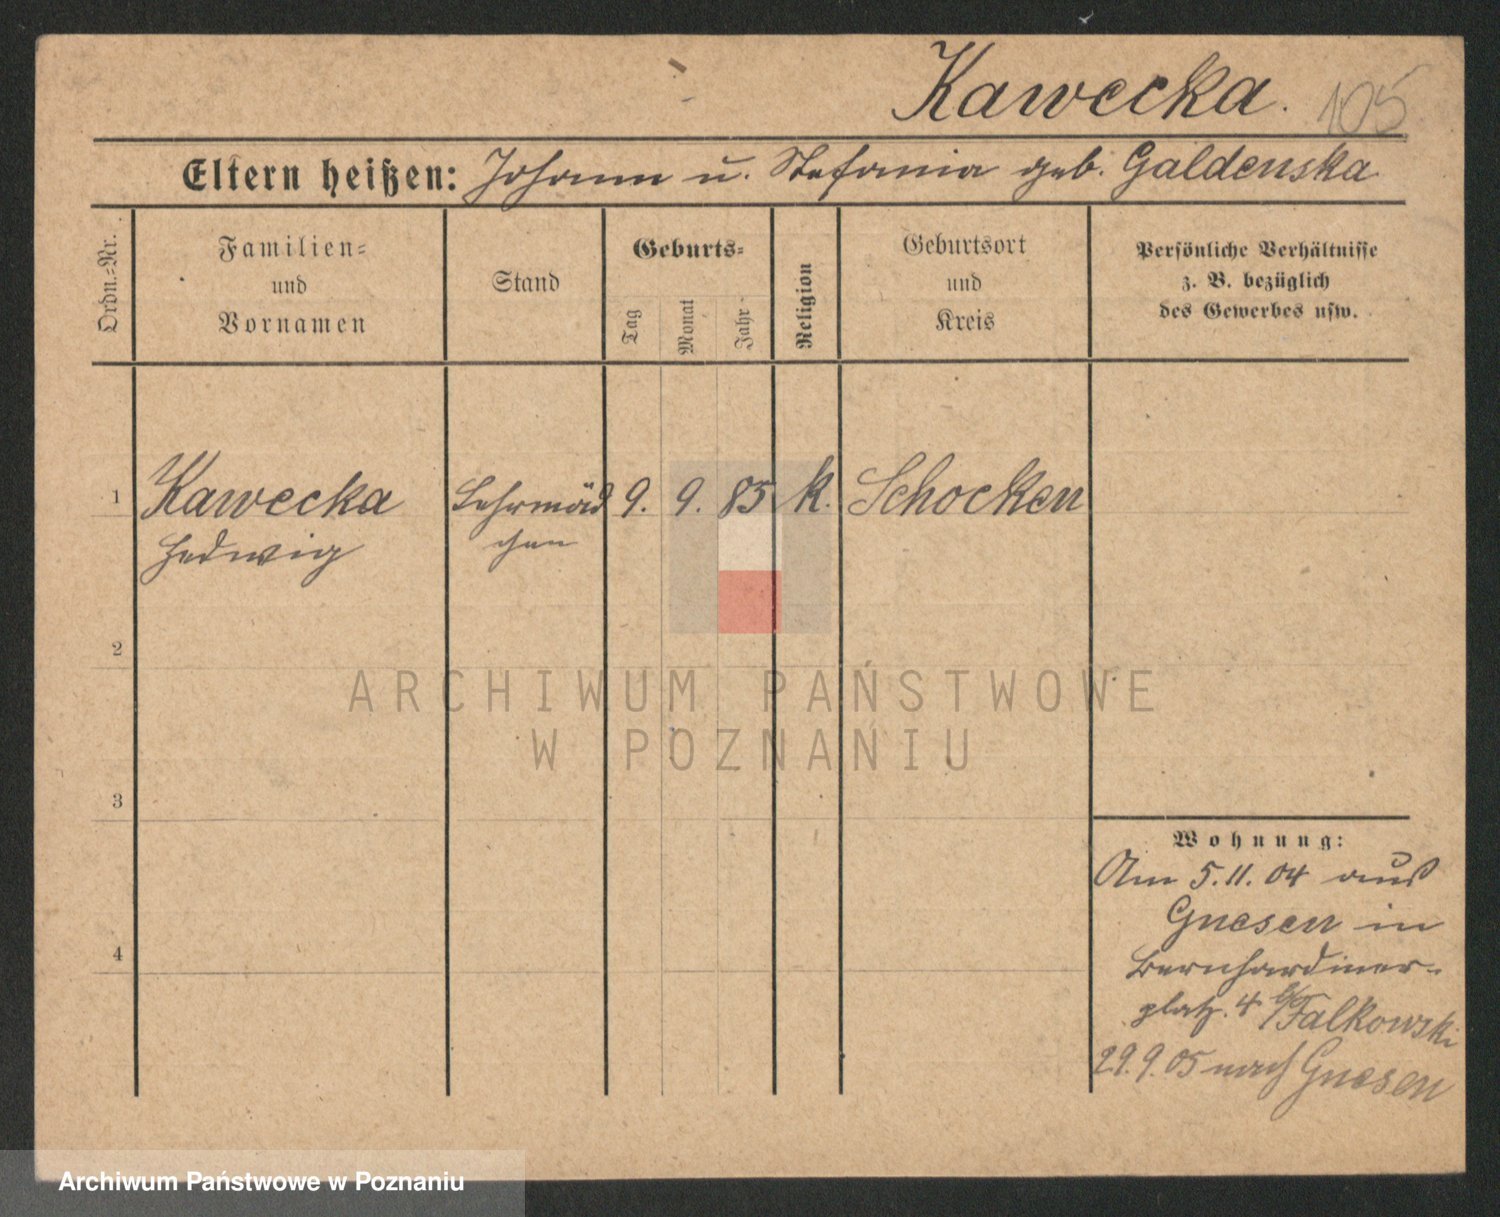 Kawecka. 105
Eltern heißen: Johann u. Stefania geb. Galdenska
Ordn.-Nr.
Familien-
und
Vornamen
Stand
Geburts-
Tag
Monat
Jahr
Religion
Geburtsort
und
Kreis
Persönliche Verhältnisse
z. B. bezüglich
des Gewerbes usw.
1 Kawecka Lehrmäd 9. 9. 85 k. Schocken
Hedwig chen
2
ARCHIWUM PAŃSTWOWE
W POZNANIU
3
Wohnung:
Am 5.11.04 aus
Gnesen in
4
Bernhardiner-
platz. 4 b/Falkowski
29.9.05 nach Gnesen
Archiwum Państwowe w Poznaniu